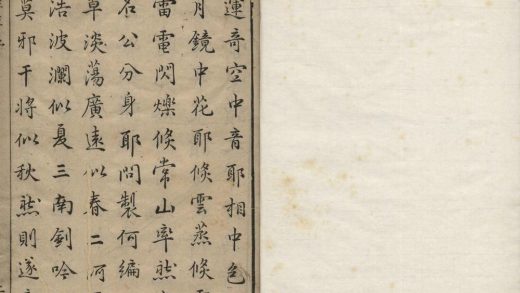 運奇空中音耶相中色
月鏡中花耶倏雲蒸倏
雷電閃爍倏常山率然
名公分身耶問製何編
草淡蕩廣遠似春二河
浩波瀾似夏三南劍吟
莫邪干將似秋然則遂